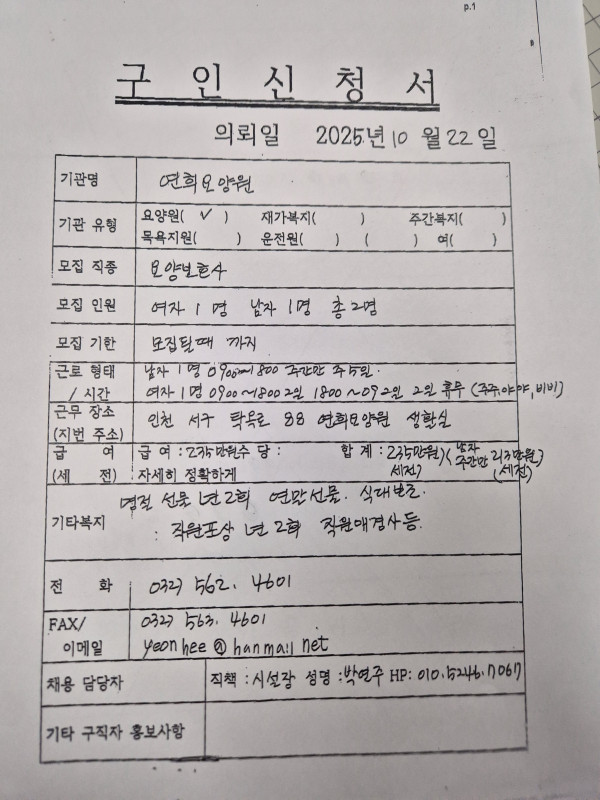 p.1
구 인 신 청 서
의뢰일 2025년 10 월 22 일
기관명 연희요양원
기관 유형 요양원( ✓ ) 재가복지( ) 주간복지( )
목욕지원( ) 운전원( ) ( ) 여( )
모집 직종 요양보호사
모집 인원 여자 1 명 남자 1명 총 2명
모집 기한 모집될때 까지
근로 형태 남자 1명 0900~1800 주간만 주5일.
/ 시간 여자 1명 0900~1800 2일 1800~09 2일 2일 휴무 (주주,야야,비비)
근무 장소 인천 서구 탁옥로 88 연희요양원 생활실
(지번 주소)
급 여 급 여 : 235만원 수 당 : 합 계 : 235만원) (남자 주간만 213만원)
(세 전) 자세히 정확하게 세전) (세전)
기타복지 명절 선물 년 2회 연말선물. 식대보조.
: 직원포상 년 2회 직원애경사등.
전 화 032) 562. 4601
FAX/ 032) 563. 4601
이메일 yeonhee@hanmail net
채용 담당자 직책 : 시설장 성명 : 박연주 HP: 010.5246.7067
기타 구직자 홍보사항